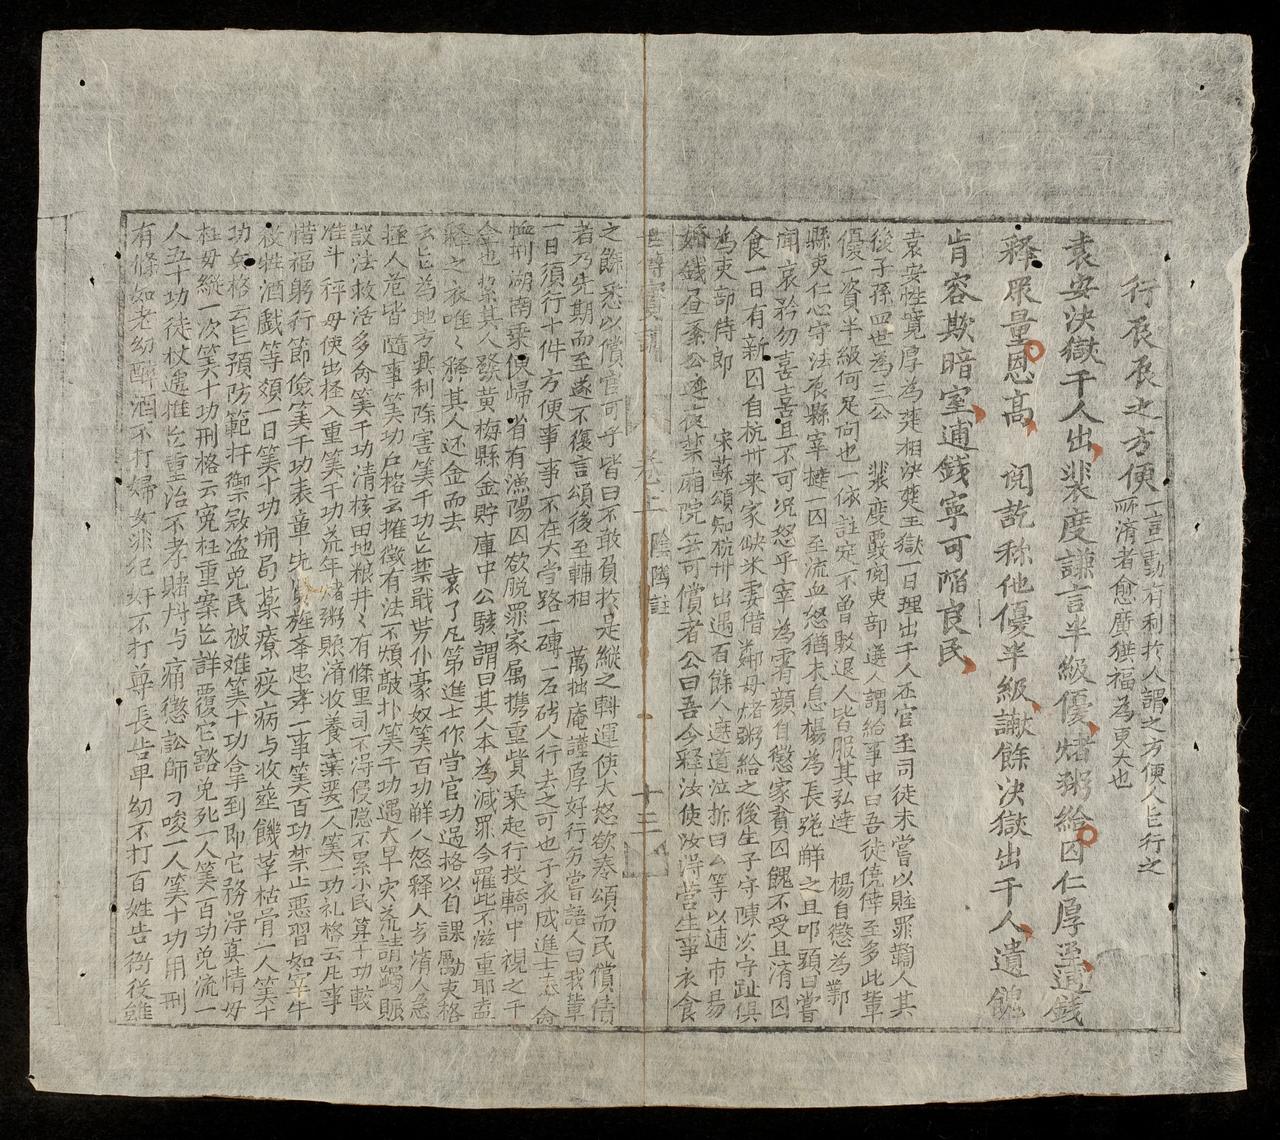 行展展之方便一言一動有利扵人謂之方便人能行之
所濟者愈廣獲福為更大也
袁安决獄千人出裴度謙言半級優煮粥給囚仁厚至逋錢
释眾量恩高 閲訖称他優半級讞餘决獄出千人遺餽
肯容欺暗室逋錢寜可陥良民
袁安性寛厚為楚相决楚王獄一日理出千人丕官至司徒未嘗以賍罪鞫人其
後子孫四世為三公 裴度觀閲吏部選人謂給事中曰吾徒僥倖至多此輩
優一資半級何足問也一依註定不曽駁退人皆服其弘達 楊自懲為鄞
縣吏仁心守法辰縣宰撻一囚至流血怒猶未息楊為長跪觧之且叩頭曰嘗
聞哀矜勿喜喜且不可况怒乎宰為霽顔自懲家貧囚餽不受且濟囚
食一日有新囚自杭州来家缺米妻借鄰母煮粥給之後生子守陳次守趾俱
為吏部侍郎 宋蘇頌知杭州出遇百餘人遮道泣拆曰厶等以逋市易
婚錢晝系公庭夜禁廂院無可償者公曰吾今释汝使汝淂营生事衣食
世傳寳訓 卷二 陰隲註 十三
之餘悉以償官可乎皆曰不敢負扵是縦之轉運使大怒欲奏頌而民償債
者乃先期而至遂不復言頌後至輔相 萬拙庵謹厚好行方嘗語人曰我輩
一日須行十件方便事事不在大當路一磚一石碍人行去之可也子衣成進士志 俞
恤刑湖南乘便歸省有漁陽囚欲脱罪家属携重貲乘起行投轎中視之千
金也察其人發黄梅縣金貯庫中公駭謂曰其人本為减罪今罹此不滋重耶盍
释之衣唯々释其人还金而去 袁了凡第進士作當官功過格以自課勵吏格
云能為地方興利除害筭千功能禁戢势仆豪奴筭百功觧人怒释人㝵濟人急
拯人危皆隨事筭功户格云摧徵有法不煩敲扑筭千功遇大旱灾荒請蠲賑
設法救活多命筭千功清核田地粮井々有條里司不淂侵隠不累小民算十功較
准斗秤毋使出輕入重筭千功荒年煮粥賑濟收養棄嬰一人筭一功礼格云凡事
惜福躬行節儉筭千功表章先賢旌奉忠孝一事筭百功禁止悪習如宰牛
殺牲酒戯等頖一日筭十功開局藥療疫病与收塟饑莩枯骨一人筭十
功兵格云能預防範扞禦敥盗免民被难筭十功拿到即它務淂真情毋
枉毋縦一次筭十功刑格云寃枉重案能詳覆它豁免死一人筭百功免流一
人五十功徒杖遞推能重治不孝賭丹与痛懲訟師刁唆一人筭十功用刑
有條如老幼醉酒不打婦女非犯奸不打尊長告卑幼不打百姓告衙後雖